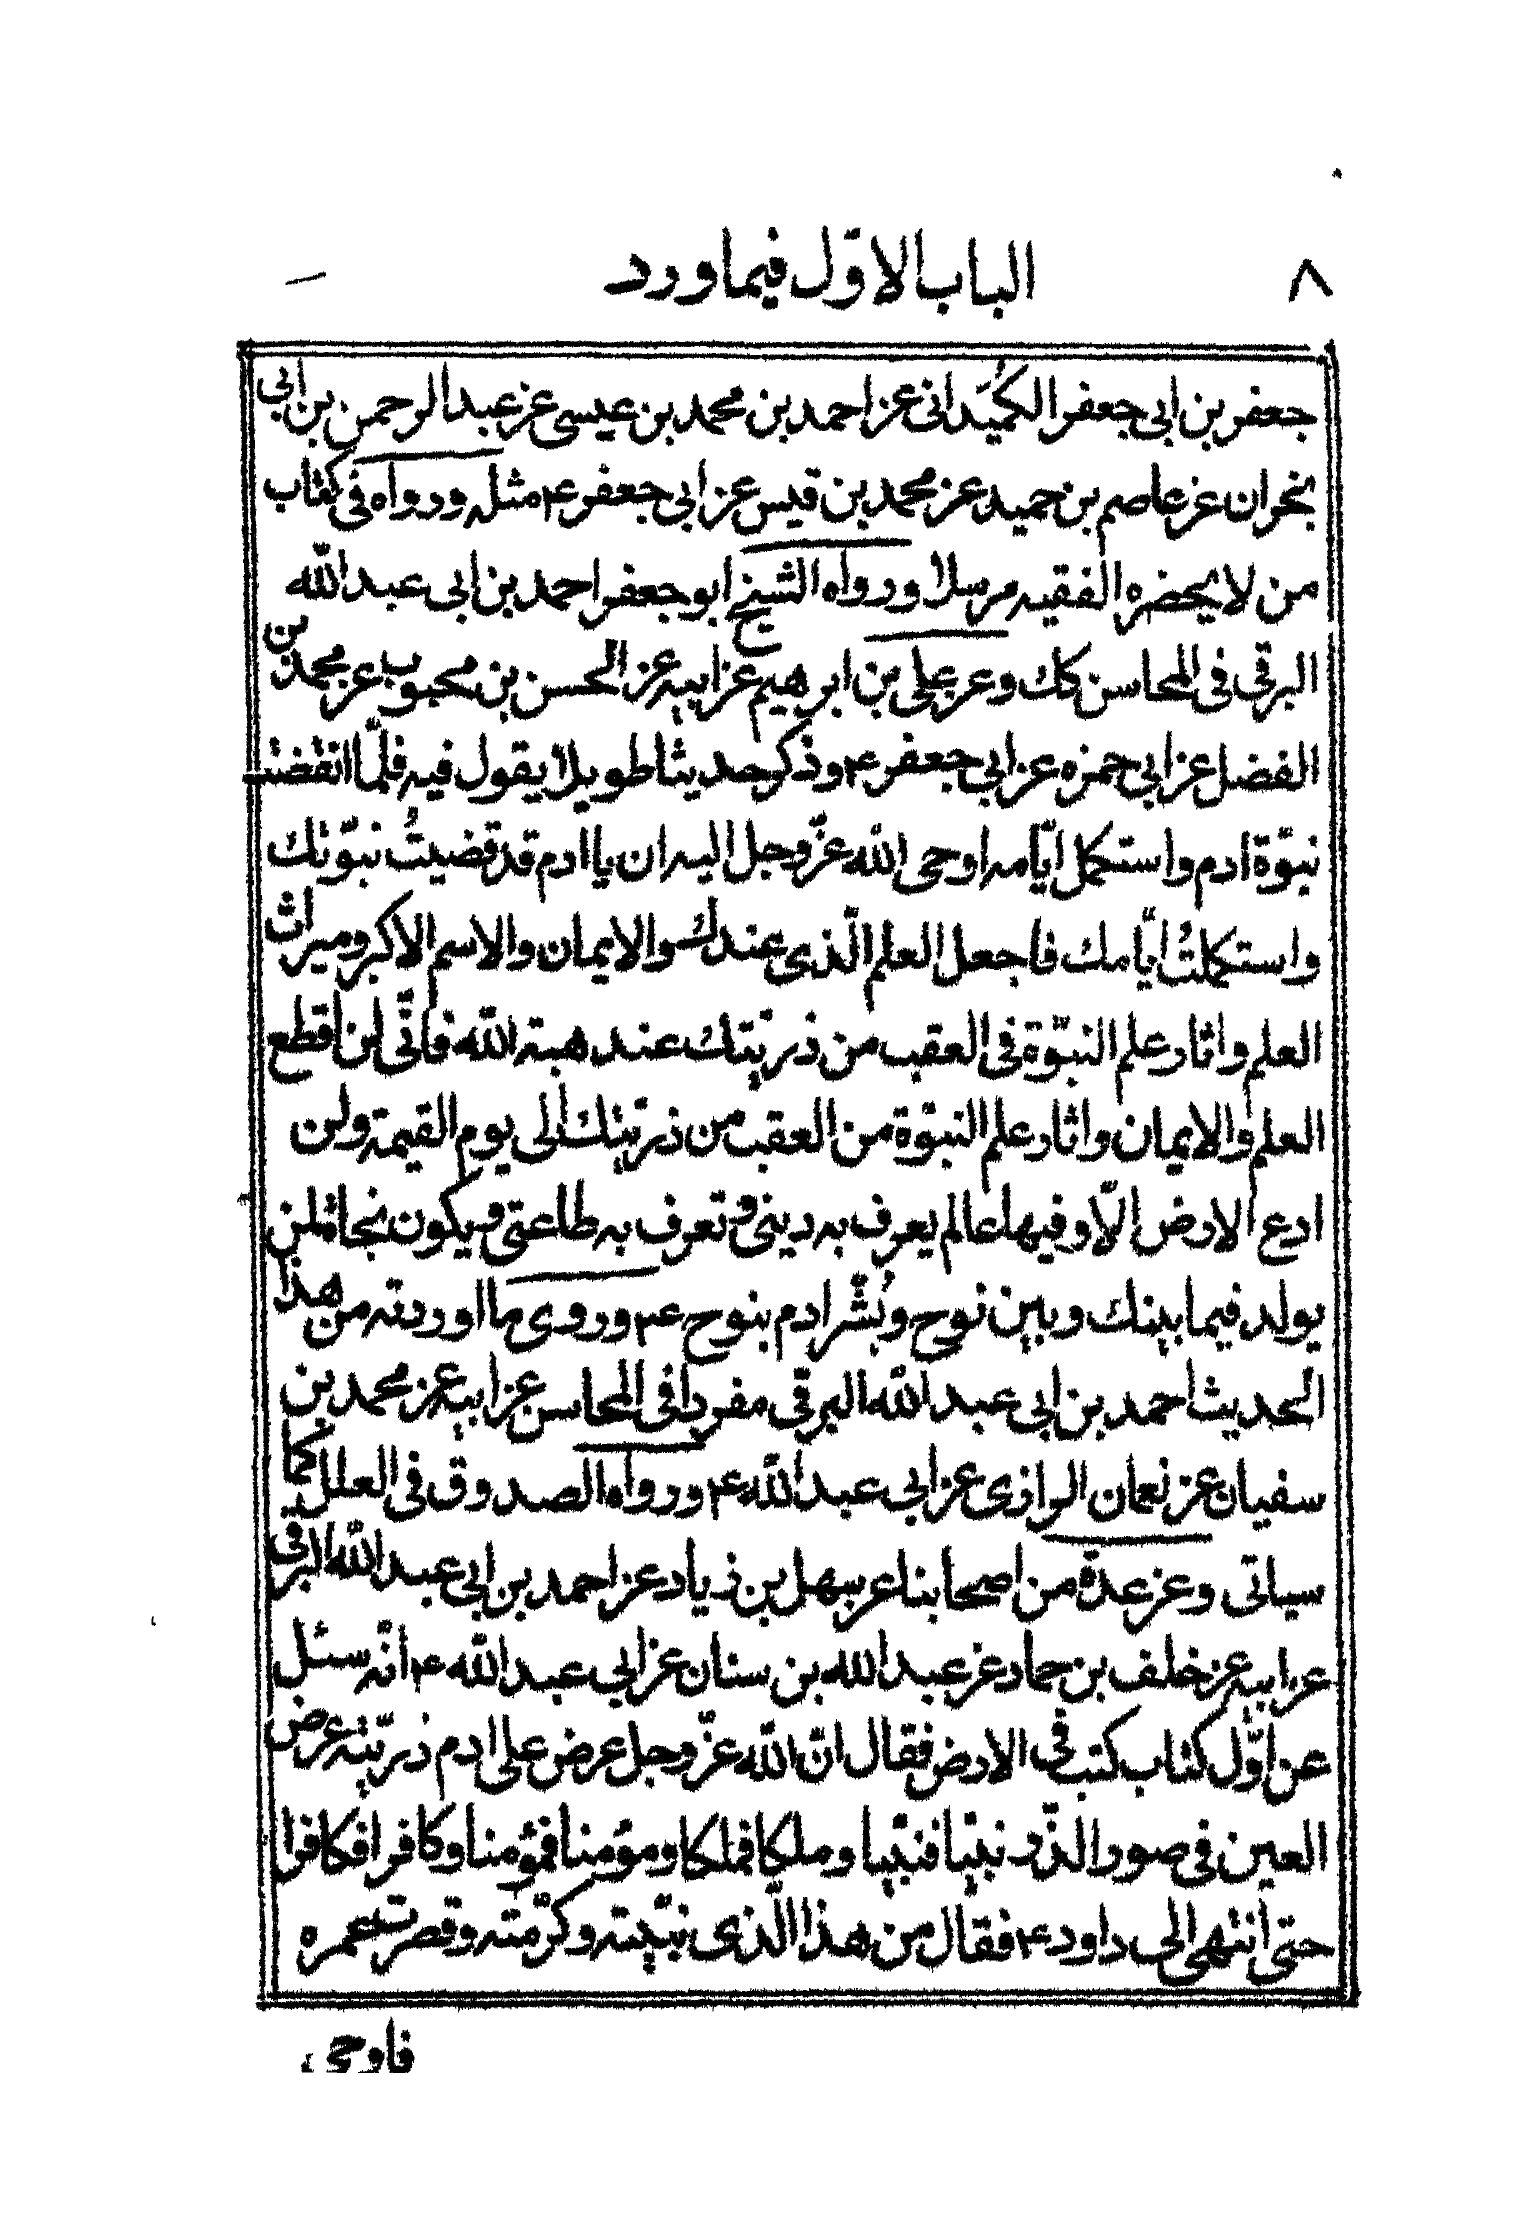 ٨
الباب الاوّل فيما ورد
جعفر بن ابى جعفر الكُمَيدانى عن احمد بن محمد بن عيسى عن عبد الرحمن بن ابى
نجران عن عاصم بن حميد عن محمد بن قيس عن ابى جعفر ع مثله ورواه فى كتاب
من لا يحضره الفقيه مرسلا ورواه الشيخ ابو جعفر احمد بن ابى عبد الله
البرقى فى المحاسن كك وعن على بن ابرهيم عن ابيه عن الحسن بن محبوب عن محمد بن
الفضل عن ابى حمزه عن ابى جعفر ع وذكر حديثا طويلا يقول فيه فلمّا انقضت
نبوّة ادم واستكمل ايّامه اوحى الله عزّ وجل اليه ان يا ادم قد قضيتُ نبوّتك
واستكملتُ ايّامك فاجعل العلم الّذى عندك والايمان والاسم الاكبر وميراث
العلم واثار علم النبوّة فى العقب من ذريّتك عند هبة الله فانّى لن اقطع
العلم والايمان واثار علم النبوّة من العقب من ذريّتك الى يوم القيمة ولن
ادع الارض الّا وفيها عالم يعرف به دينى وتعرف به طاعتى ويكون نجاة لمن
يولد فيما بينك وبين نوح وبُشّر ادم بنوح ع وروى ما اوردته من هذا
الحديث احمد بن ابى عبد الله البرقى مفردا فى المحاسن عن ابيه عن محمد بن
سفيان عن نعمان الرازى عن ابى عبد الله ع ورواه الصدوق فى العلل كما
سياتى وعن عدة من اصحابنا عن سهل بن زياد عن احمد بن ابى عبد الله البرقى
عن ابيه عن خلف بن حماد عن عبد الله بن سنان عن ابى عبد الله ع انّه سئل
عن اوّل كتاب كتب فى الارض فقال انّ الله عزّ وجل عرض على ادم ذريّته عرض
العين فى صور الذّر نبيّا فنبيّا وملكا فملكا ومؤمنا فمؤمنا وكافرا فكافرا
حتى انتهى الى داود ع فقال من هذا الّذى نبّيته وكرّمته وقصرت عمره
فاوحى